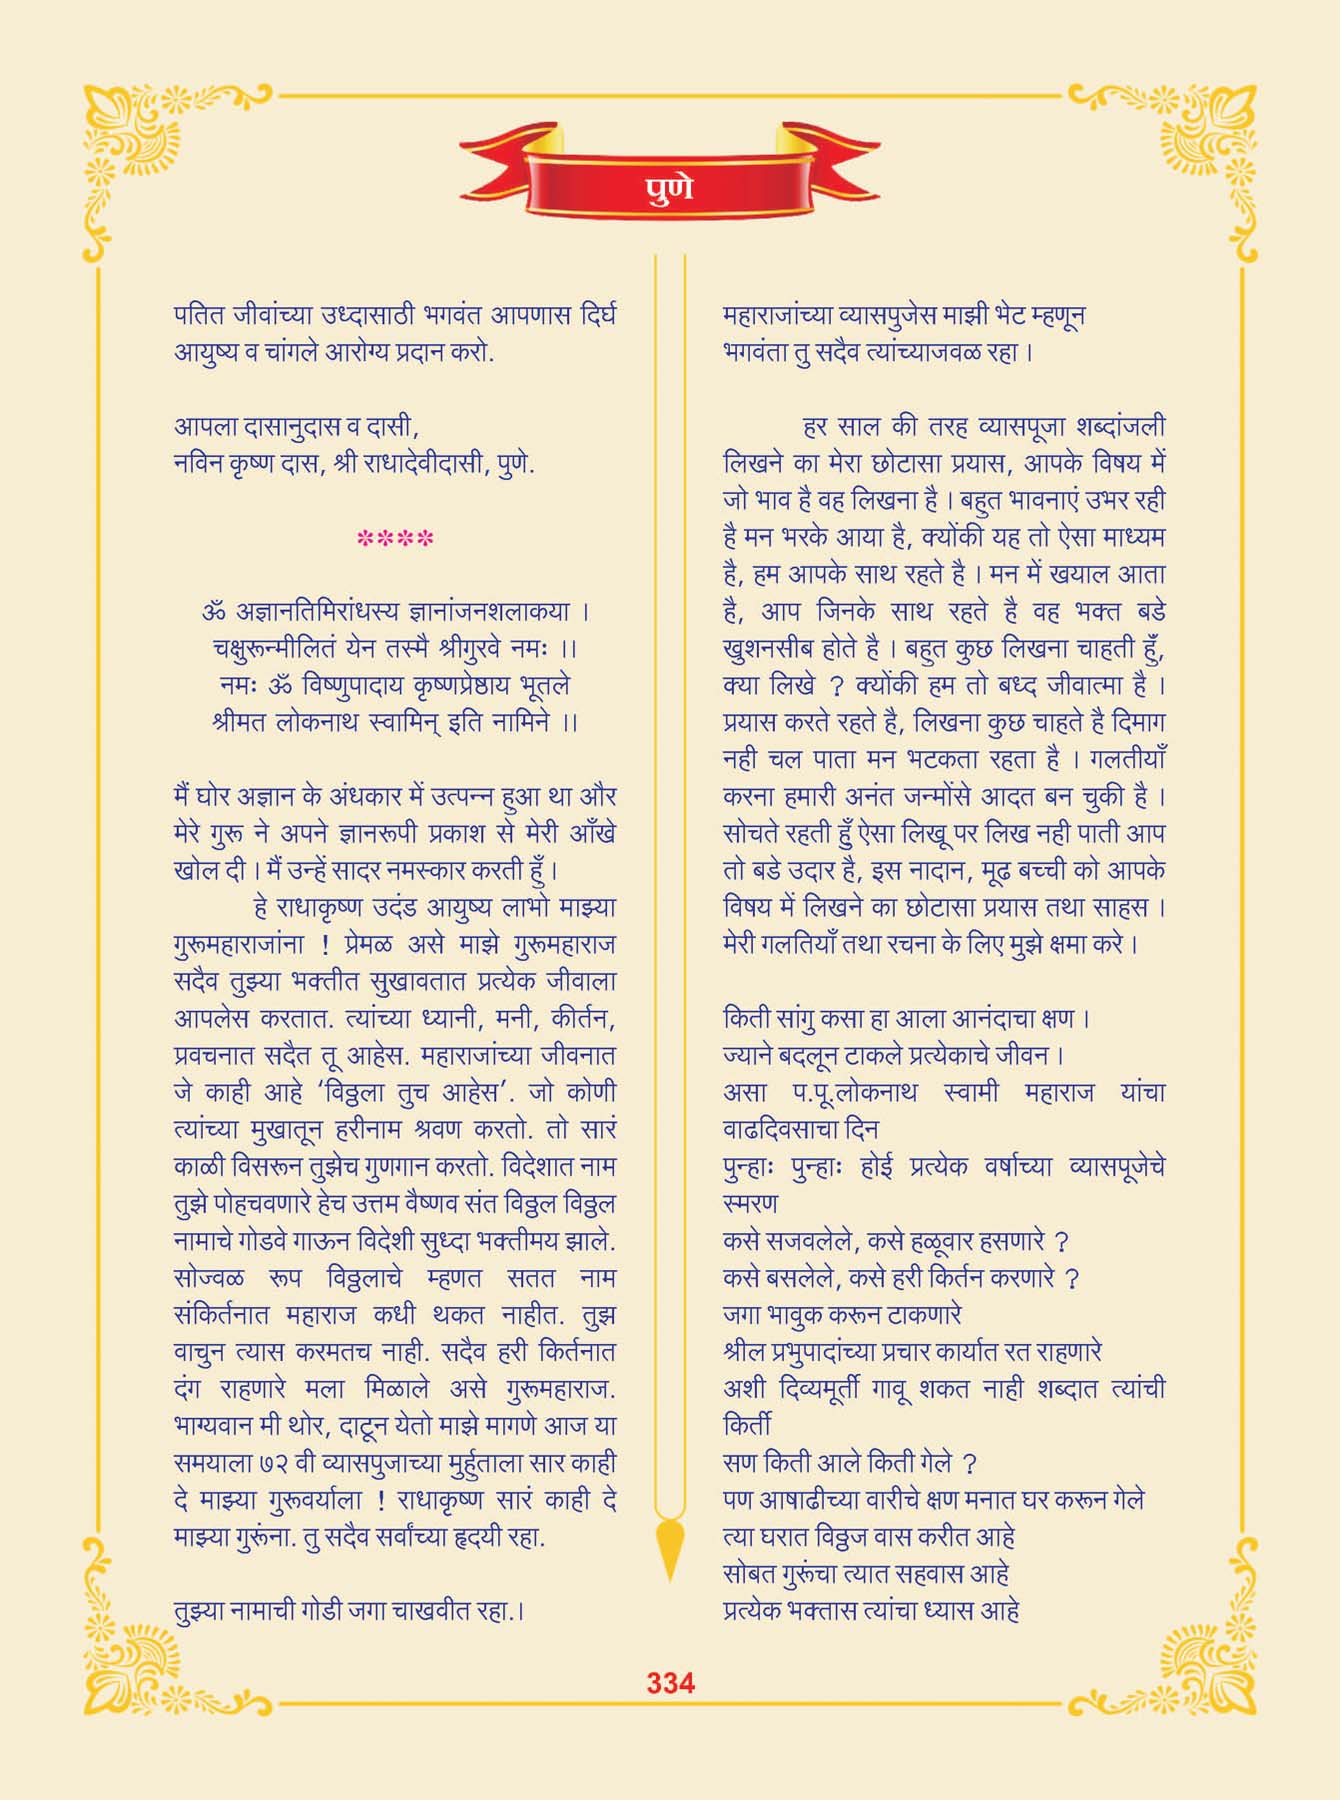 पुणे
पतित जीवांच्या उध्दासाठी भगवंत आपणास दिर्घ
आयुष्य व चांगले आरोग्य प्रदान करो.
आपला दासानुदास व दासी,
नविन कृष्ण दास, श्री राधादेवीदासी, पुणे.
****
ॐ अज्ञानतिमिरांधस्य ज्ञानांजनशलाकया ।
चक्षुरून्मीलितं येन तस्मै श्रीगुरवे नमः ।।
नमः ॐ विष्णुपादाय कृष्णप्रेष्ठाय भूतले
श्रीमत लोकनाथ स्वामिन् इति नामिने ।।
मैं घोर अज्ञान के अंधकार में उत्पन्न हुआ था और
मेरे गुरू ने अपने ज्ञानरूपी प्रकाश से मेरी आँखे
खोल दी । मैं उन्हें सादर नमस्कार करती हुँ ।
हे राधाकृष्ण उदंड आयुष्य लाभो माझ्या
गुरूमहाराजांना ! प्रेमळ असे माझे गुरूमहाराज
सदैव तुझ्या भक्तीत सुखावतात प्रत्येक जीवाला
आपलेस करतात. त्यांच्या ध्यानी, मनी, कीर्तन,
प्रवचनात सदैत तू आहेस. महाराजांच्या जीवनात
जे काही आहे ‘विठ्ठला तुच आहेस’. जो कोणी
त्यांच्या मुखातून हरीनाम श्रवण करतो. तो सारं
काळी विसरून तुझेच गुणगान करतो. विदेशात नाम
तुझे पोहचवणारे हेच उत्तम वैष्णव संत विठ्ठल विठ्ठल
नामाचे गोडवे गाऊन विदेशी सुध्दा भक्तीमय झाले.
सोज्वळ रूप विठ्ठलाचे म्हणत सतत नाम
संकिर्तनात महाराज कधी थकत नाहीत. तुझ
वाचुन त्यास करमतच नाही. सदैव हरी किर्तनात
दंग राहणारे मला मिळाले असे गुरूमहाराज.
भाग्यवान मी थोर, दाटून येतो माझे मागणे आज या
समयाला ७२ वी व्यासपुजाच्या मुर्हुताला सार काही
दे माझ्या गुरूवर्याला ! राधाकृष्ण सारं काही दे
माझ्या गुरूंना. तु सदैव सर्वांच्या हृदयी रहा.
तुझ्या नामाची गोडी जगा चाखवीत रहा.।
महाराजांच्या व्यासपुजेस माझी भेट म्हणून
भगवंता तु सदैव त्यांच्याजवळ रहा ।
हर साल की तरह व्यासपूजा शब्दांजली
लिखने का मेरा छोटासा प्रयास, आपके विषय में
जो भाव है वह लिखना है । बहुत भावनाएं उभर रही
है मन भरके आया है, क्योंकी यह तो ऐसा माध्यम
है, हम आपके साथ रहते है । मन में खयाल आता
है, आप जिनके साथ रहते है वह भक्त बडे
खुशनसीब होते है । बहुत कुछ लिखना चाहती हुँ,
क्या लिखे ? क्योंकी हम तो बध्द जीवात्मा है ।
प्रयास करते रहते है, लिखना कुछ चाहते है दिमाग
नही चल पाता मन भटकता रहता है । गलतीयाँ
करना हमारी अनंत जन्मोंसे आदत बन चुकी है ।
सोचते रहती हुँ ऐसा लिखू पर लिख नही पाती आप
तो बडे उदार है, इस नादान, मूढ बच्ची को आपके
विषय में लिखने का छोटासा प्रयास तथा साहस ।
मेरी गलतियाँ तथा रचना के लिए मुझे क्षमा करे ।
किती सांगु कसा हा आला आनंदाचा क्षण ।
ज्याने बदलून टाकले प्रत्येकाचे जीवन ।
असा प.पू.लोकनाथ स्वामी महाराज यांचा
वाढदिवसाचा दिन
पुन्हाः पुन्हाः होई प्रत्येक वर्षाच्या व्यासपूजेचे
स्मरण
कसे सजवलेले, कसे हळूवार हसणारे ?
कसे बसलेले, कसे हरी किर्तन करणारे ?
जगा भावुक करून टाकणारे
श्रील प्रभुपादांच्या प्रचार कार्यात रत राहणारे
अशी दिव्यमूर्ती गावू शकत नाही शब्दात त्यांची
किर्ती
सण किती आले किती गेले ?
पण आषाढीच्या वारीचे क्षण मनात घर करून गेले
त्या घरात विठ्ठज वास करीत आहे
सोबत गुरूंचा त्यात सहवास आहे
प्रत्येक भक्तास त्यांचा ध्यास आहे
334